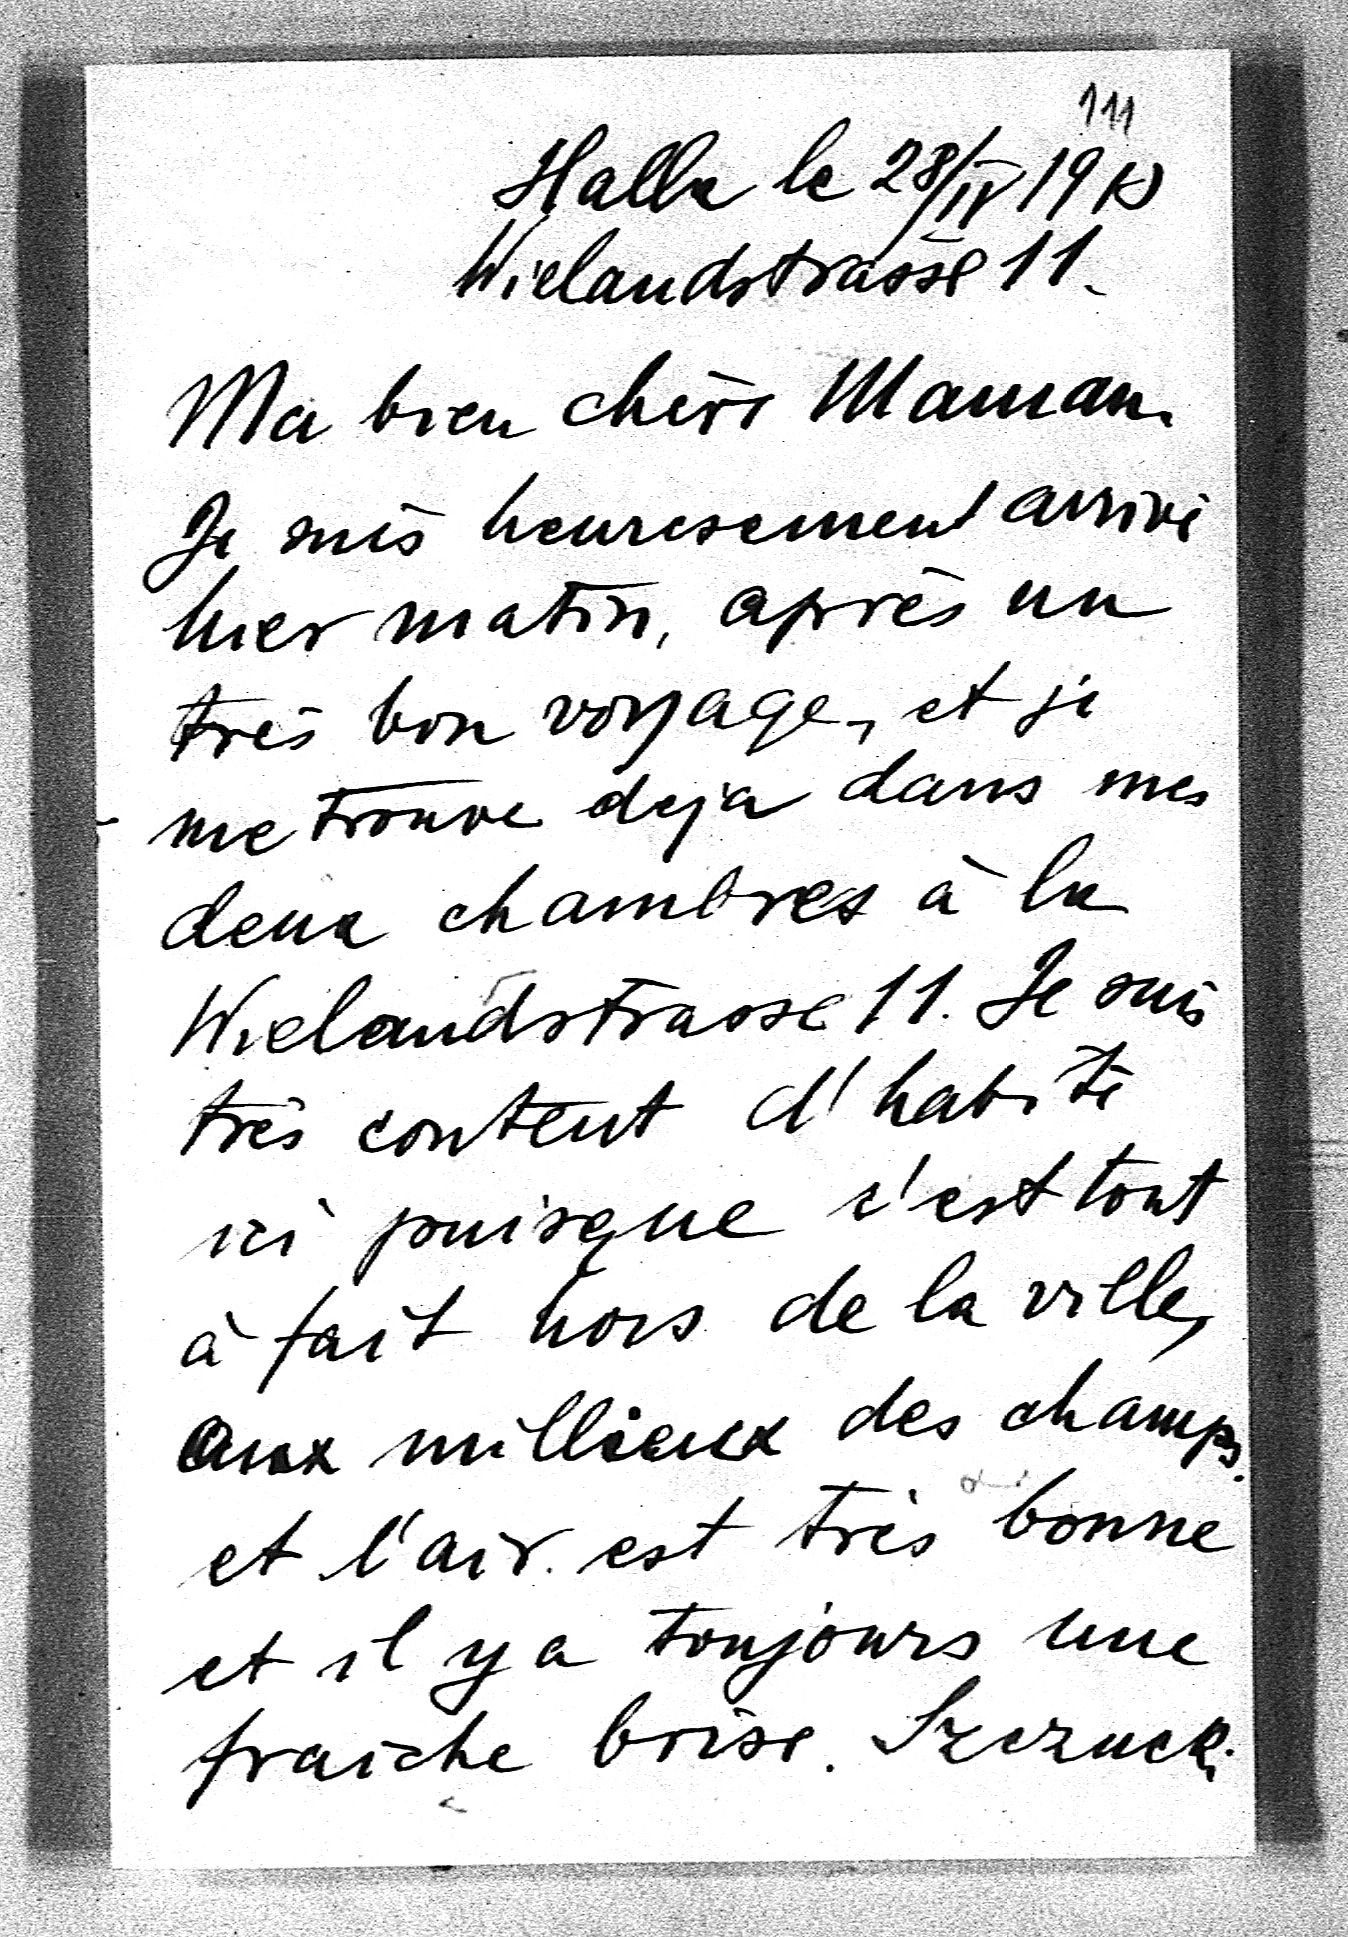 111
Halla le 28/IV 19
Wielandstrasse 11.
Ma bien chère Maman.
Je suis heuresement arrivé
hier matin, après un
très bon voyage, et je
me trouve deja dans mes
deux chambres à la
Wielandstrasse 11. Je suis
très content d'habité
ici puisque c'est tout
à fait hors de la ville,
aux millieux des champs.
et l'air est très bonne
et il y a toujours une
fraiche brise. Szczucki